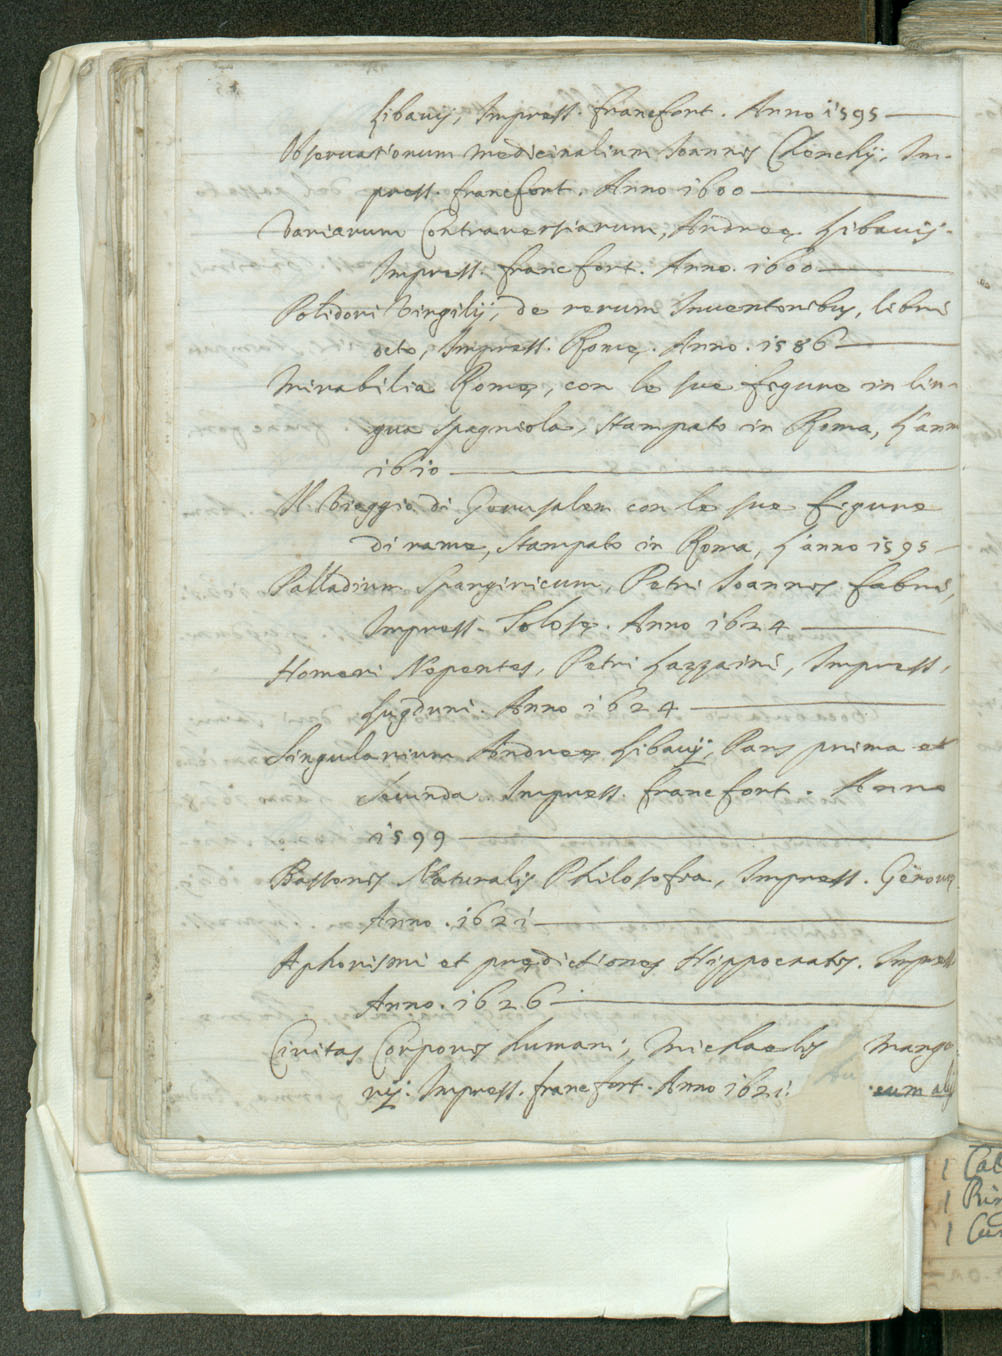 Libauij, Impress. francfort. Anno 1595
Obseruationum medicinalium Joannis Chenchij, Im-
press. francfort. Anno 1600
Variarum Contrauersiarum, Andreę Libauij.
Impress. francfort. Anno. 1600
Polidori Virgilij, de rerum Inuentoribus, libri
octo, Impress. Romę. Anno. 1586
Mirabilia Romę, con le sue figure in lin-
gua spagniola, stampato in Roma, L'ann
1610
Il Vieggio di Gerusalem con le sue figure
di rame, stampato in Roma, L'anno 1595
Palladium Spargiricum, Petri Joannis fabri,
Impress. Tolosę. Anno 1624
Homeri Nepentes, Petri Lazzarini, Impress,
Lugduni. Anno 1624
Singularium Andreę Libauij, Pars prima et
secunda. Impress. francfort. Anno
1599
Bassonis Naturalis Philosofia, Impress. Geneuę
Anno. 1621
Aphorismi et prędictiones Hippocratis. Impress
Anno. 1626
Ciuitas Corporis humani, Michaelis
rij: Impress. francfort. Anno 1621: cum alij
1
1
1